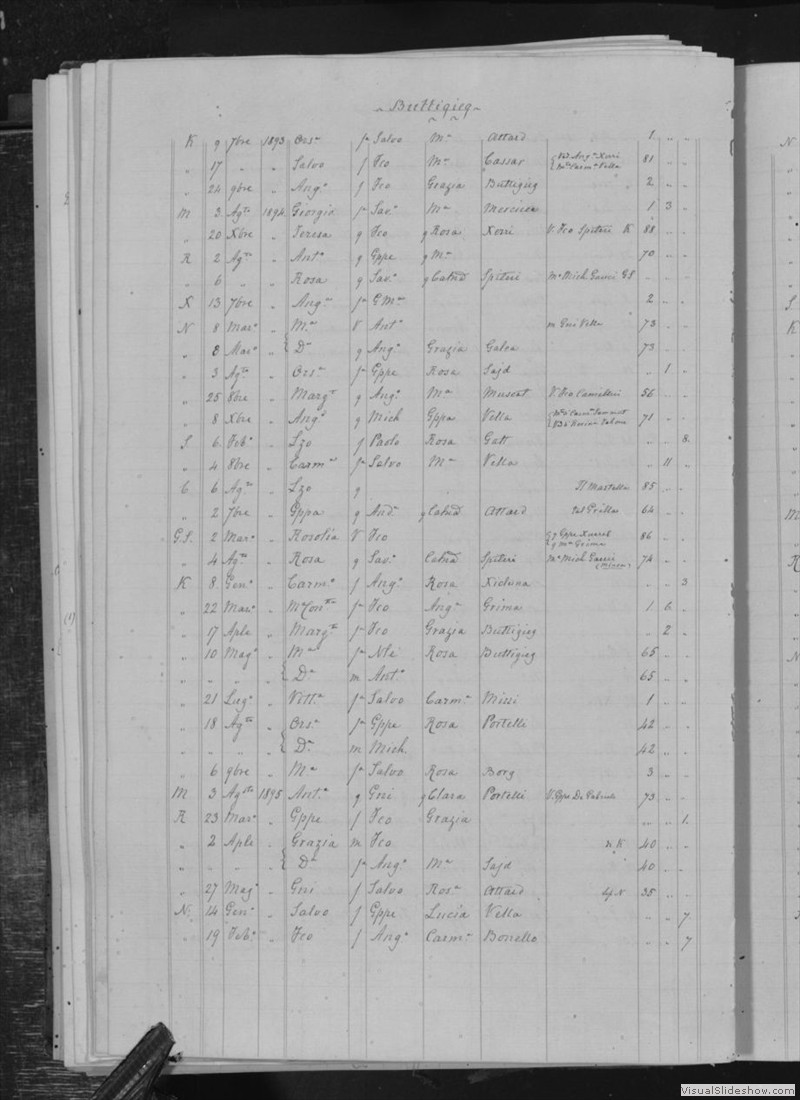 Buttigieg
K 9 7bre 1893 Ors.a fa Salvo Ma Attard 1 " "
" 17 " " Salvo f Fco Ma Cassar 81 " "
" 24 9bre " Ang.a f Fco Grazia Buttigieg 2 " "
M 3 Ag.to 1894 Georgia fa Sav.o Ma Mercieca 1 3 "
" 20 Xbre " Teresa q Fco q Rosa Xerri V. Fco Spiteri K 88 " "
R 2 Ag.to " Ant.a q Gppe q Ma 70 " "
" 6 " " Rosa q Sav.o q Catnd Spiteri " " "
X 13 7bre " Ang.a fa G Ma 2 " "
N 8 Mar.o " Ma V Ant.o m Gni Vella 73 " "
" 8 Mar.o " Da q Ang.o Grazia Galea 73 " "
" 3 Ag.to " Ors.a fa Gppe Rosa Sajd " 1 "
" 25 8bre " Marg.ta q Ang.o Ma Muscat V. Fco Camilleri 56 " "
" 8 Xbre " Ang.o q Mich Gppa Vella 71 " "
S 6 Feb.o " Lzo f Paolo Rosa Gatt " " 8
" 4 8bre " Carm.a fa Salvo Ma Vella " 11 "
C 6 Ag.to " Lzo q 85 " "
" 2 7bre " Gppa q And. q Catnd Attard 64 " "
G.S. 2 Mar.o " Rosolia V Fco 86 " "
" 4 Ag.to " Rosa q Sav.o Catnd Spiteri 74 " "
K 8 Gen.o " Carm.o f Ang.o Rosa Xicluna " " 3
" 22 Mar.o " fa Fco Ang.a Grima 1 6 "
" 17 Aple " Marg.ta fa Fco Grazia Buttigieg " 2 "
" 10 Mag.o " Ma fa Nle Rosa Buttigieg 65 " "
" " " " Da m Ant.o 65 " "
" 21 Lug.o " Vitt.a fa Salvo Carm.a Mizzi 1 " "
" 18 Ag.to " Ors.a fa Gppe Rosa Portelli 42 " "
" " " " Da m Mich. 42 " "
" 6 9bre " Ma fa Salvo Rosa Borg 3 " "
M 3 Ag.to 1895 Ant.a q Gni q Clara Portelli 73 " "
R 23 Mar.o " Gppe f Fco Grazia " " 1
" 2 Aple " Grazia m Fco K 40 " "
" " " " Da fa Ang.o Ma Sajd 40 " "
" 27 Mag.o " Gni f Salvo Ros.a Attard 35 " "
N. 14 Gen.o " Salvo f Gppe Lucia Vella " " 7
" 19 Feb.o " Fco f Ang.o Carm.a Bonello " " 7
VisualSlideshow.com